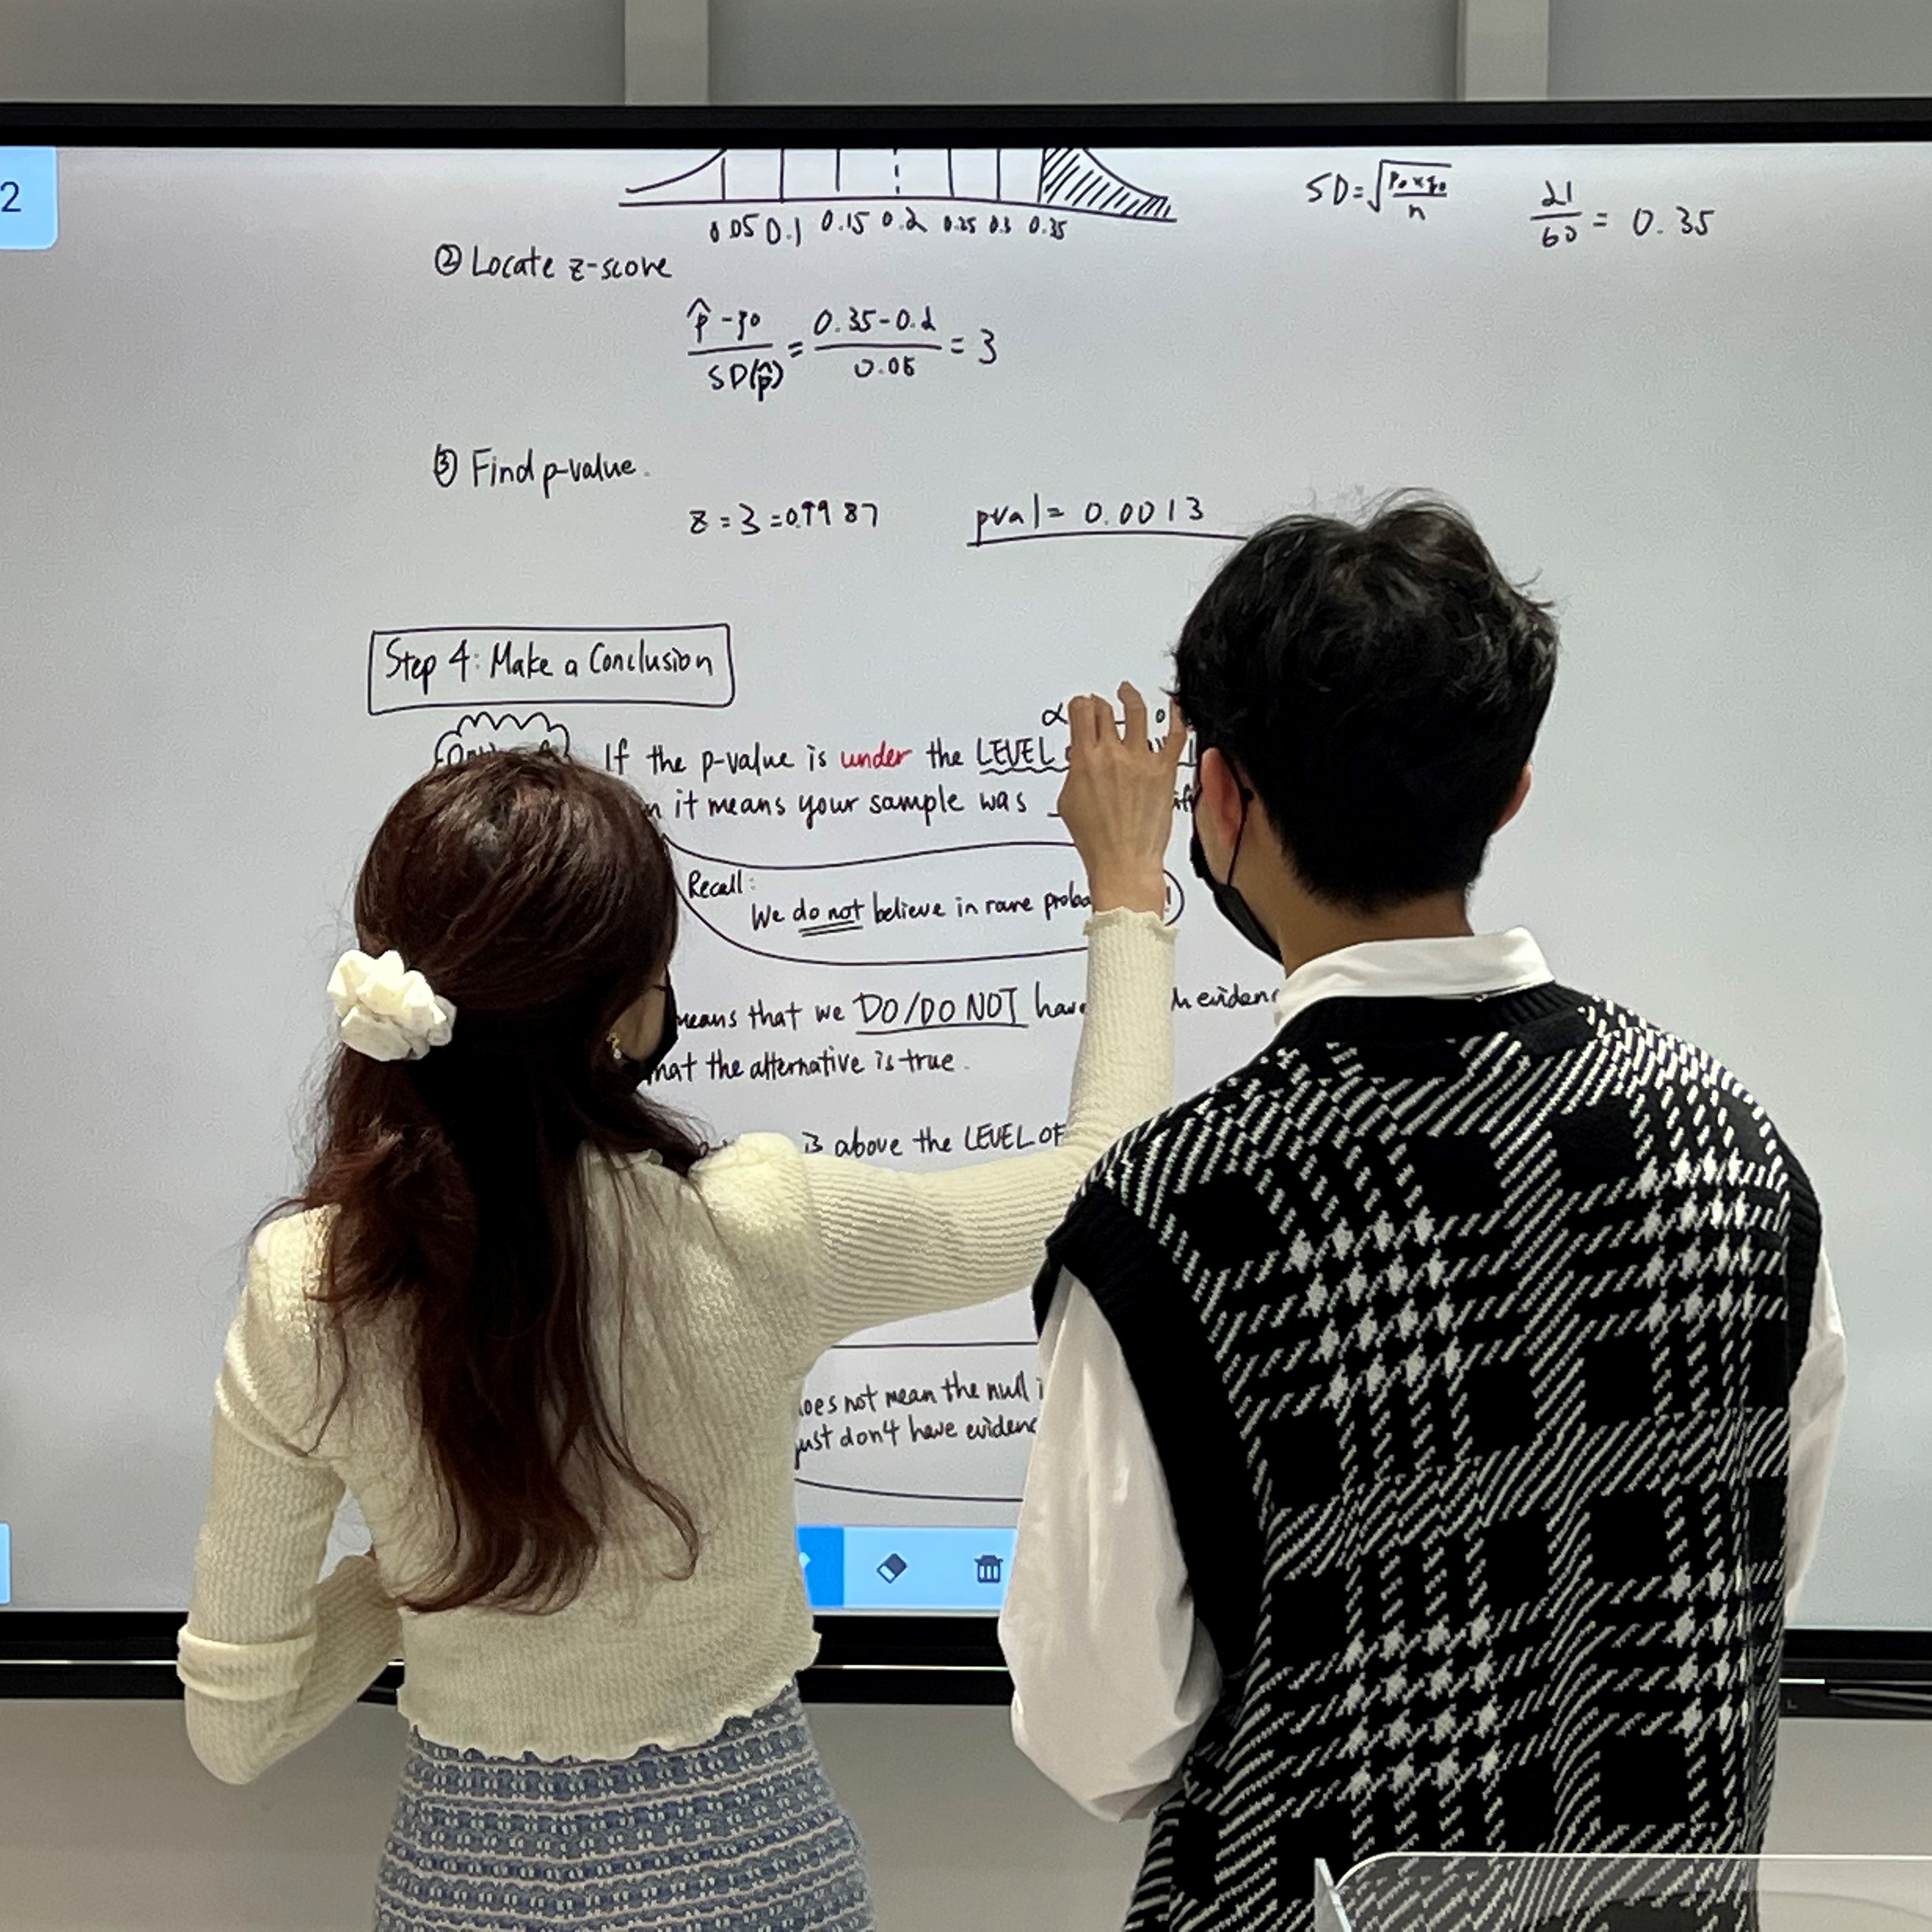 2
0.05 0.1 0.15 0.2 0.25 0.3 0.35
SD=√(p₀×q₀/n)
21/60 = 0.35
② Locate z-score
(p̂-p₀)/SD(p̂) = (0.35-0.2)/0.05 = 3
③ Find p-value.
z = 3 = 0.9987 pval = 0.0013
Step 4: Make a Conclusion
α
If the p-value is under the LEVEL
it means your sample was
Recall:
We do not believe in rare
means that we DO/DO NOT have
that the alternative is true.
is above the LEVEL OF
does not mean the null
just don't have